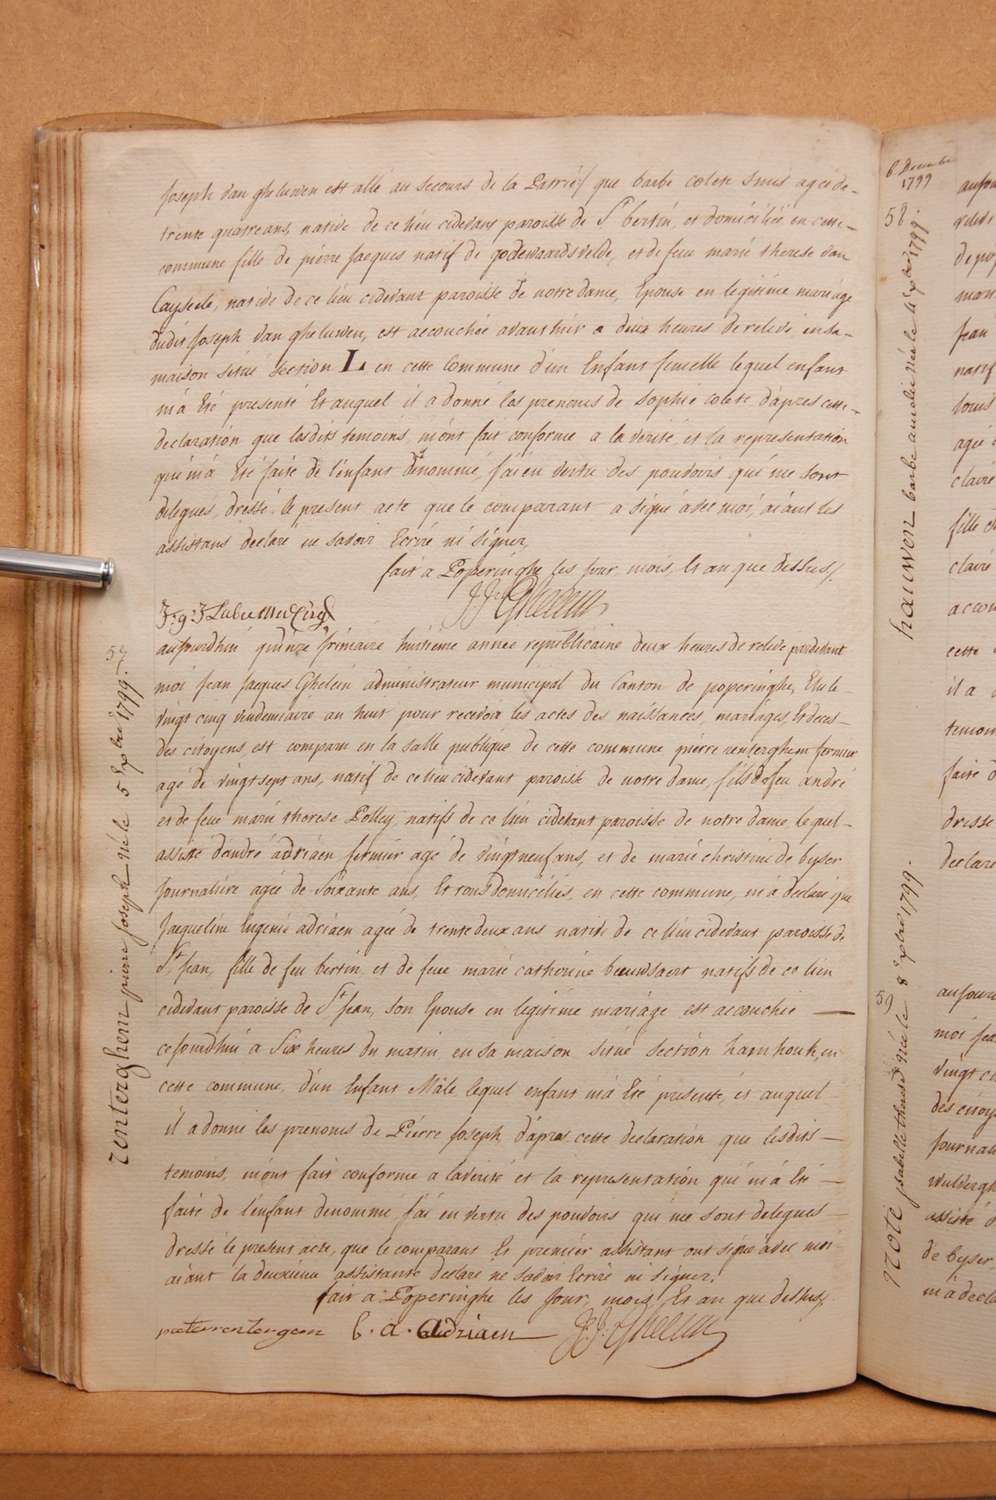 Joseph Van gheluwen est allé au secours de la Patrie/ que barbe colete Smis agée de-
trente quatre ans, native de ce lieu cidevant paroisse de St bertin, et domiciliée en cette-
commune fille de pierre Jacques natif de godewaardsvelde, et de feue marie therese van
Cayseele, native de ce lieu cidevant paroisse de notre dame, Epouse en legitime mariage
dudit Joseph van gheluwen, est accouchée avant hier a deux heures de relevé, en sa-
maison située Section L en cette commune d'un Enfant femelle lequel enfant
m'a Eté presenté Et auquel il a donné les prenoms de Sophie colete d'apres cette-
declaration que lesdits temoins, m'ont fait conforme a la verité, et la representation
qui m'a Eté faite de l'enfant denommé, j'ai en vertu des pouvoirs qui me sont
delegués, dressé, le present acte que le comparant a signé avec moi, aiant les
assistans declaré ne savoir Ecrire ni signer,
fait a Poperinghe les jour, mois, Et an que dessus/.
J: J: Ghelein
57
aujourdhui quinze frimaire huitieme année republicaine deux heures de relevé pardevant
moi Jean Jacques Ghelein administrateur municipal du Canton de poperinghe, Elu le-
vingt cinq vendemiaire an huit pour recevoir les actes des naissances, mariages, Et deces-
des citoyens, est comparu en la salle publique de cette commune pierre renterghem fermier
agé de vingt sept ans, natif de ce lieu cidevant paroisse de notre dame, fils de feu andré
et de feue marie therese Polley, natifs de ce lieu cidevant paroisse de notre dame, lequel-
assisté d'andré adriaen fermier agé de vingt neuf ans, et de marie christine de byser
journaliere agée de Soixante ans, Et tous domiciliés, en cette commune, m'a declaré que
Jacqueline Eugenie adriaen agée de trente deux ans native de ce lieu cidevant paroisse de
St Jean, fille de feu bertin, et de feue marie catherine beeuwsaert natifs de ce lieu
cidevant paroisse de St Jean, Son Epouse en legitime mariage est accouchée —
cejourdhui a Six heures du matin en sa maison située section hamhouk, en
cette commune, d'un Enfant Mâle lequel enfant m'a Eté presenté, et auquel
il a donné les prenoms de Pierre Joseph d'apres cette declaration que lesdits —
temoins, m'ont fait conforme a la verité et la representation qui m'a Eté —
faite de l'enfant denommé, j'ai en vertu des pouvoirs qui me sont delegués —
dressé le present acte, que le comparant Et premier assistant ont signé avec moi
aiant la deuxieme assistante declaré ne savoir Ecrire ni signer,
fait a Poperinghe les jour, mois Et an que dessus/.
pieter rentergem b. a. Adriaen J: J: Ghelein
renterghem pierre Joseph Né le 5 Xbre 1799.
6 Decembre
1799
58.
hauwen barbe amelie Née le
59
1799.
aujour
moi jea
vingt ci
des citoy
journali
assisté d
de byser,
m'a decla